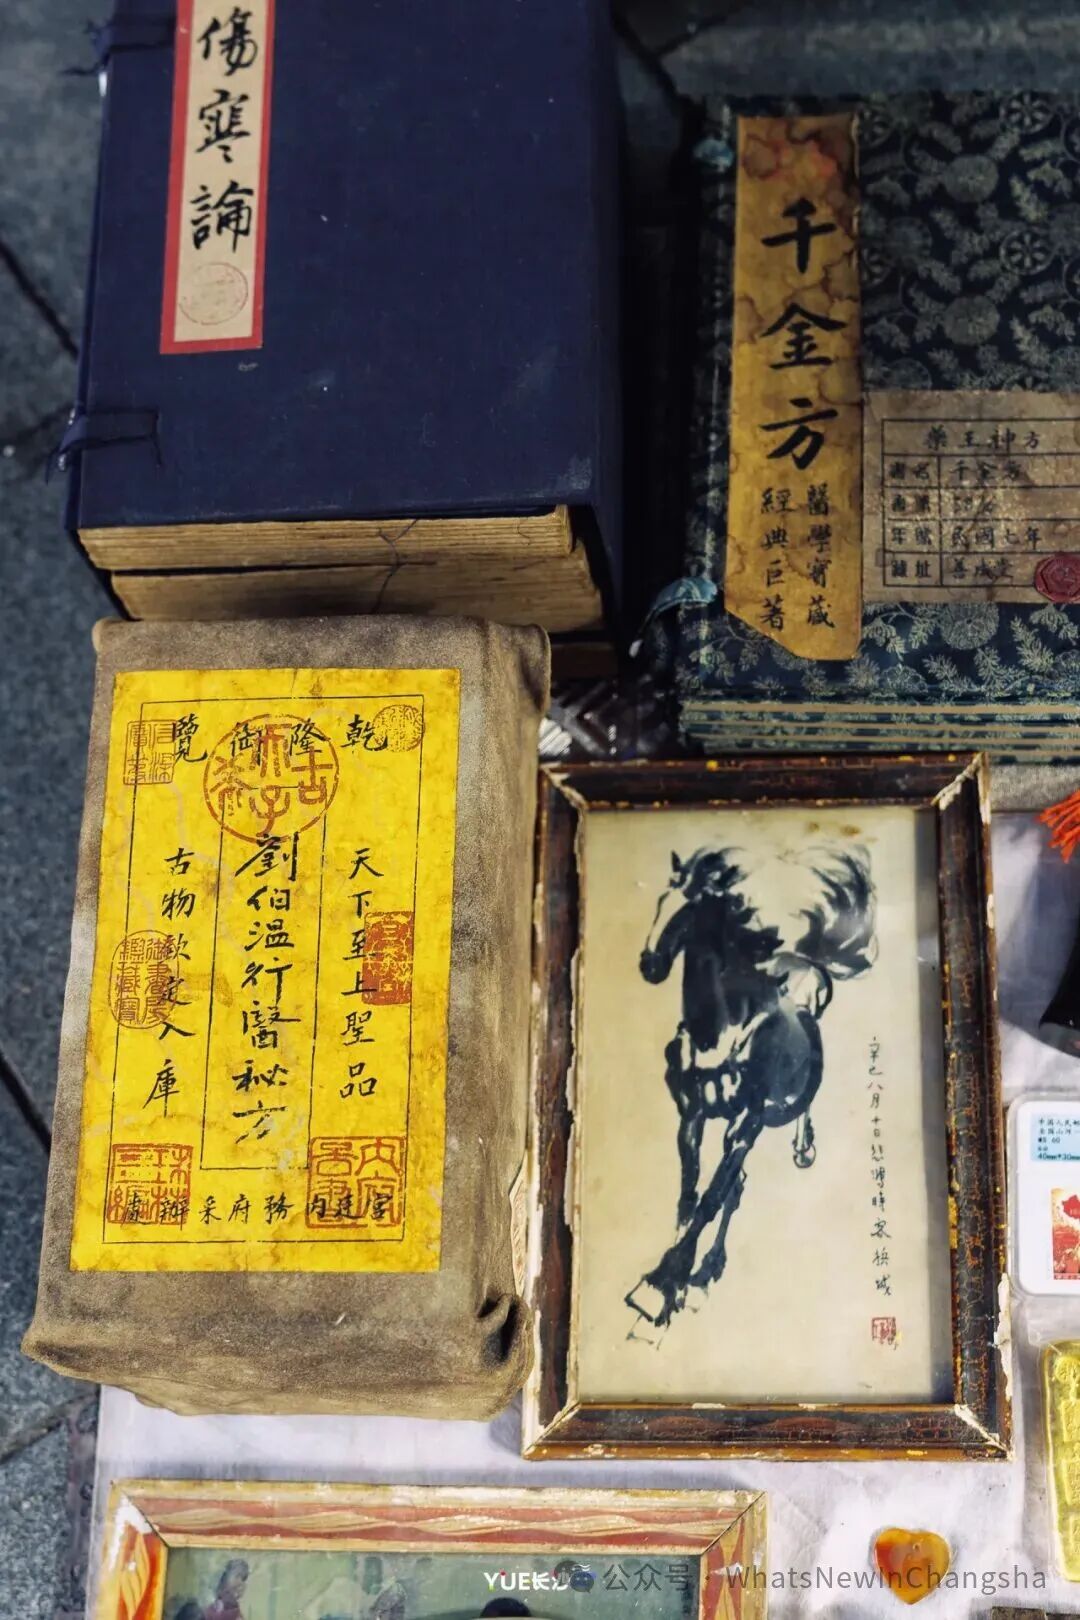 傷寒論
千金方
醫學寶藏
經典巨著
藥王神方
書名 千金方
年號 民國七年
善成堂
乾隆御覽
天下至上聖品
劉伯溫行醫秘方
古物欽定入庫
宮廷内務府采辦處
辛巳八月十日悲鴻時客檳城
YUE长沙
公众号 · WhatsNewinChangsha